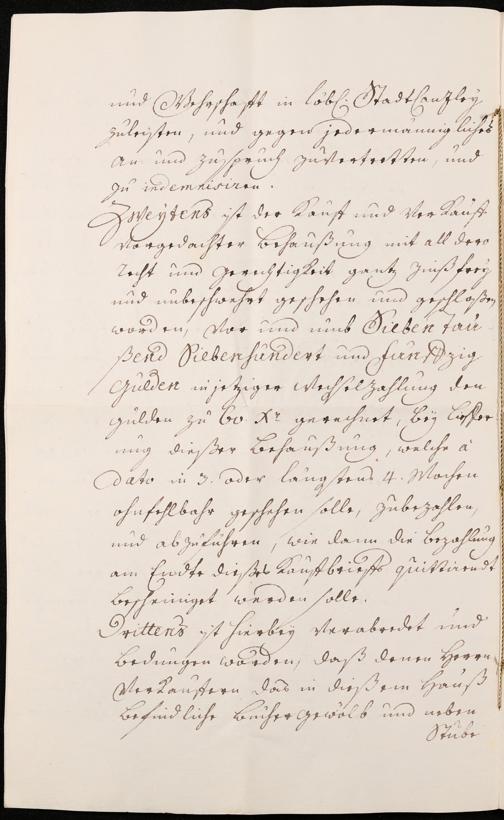 und Wehrschafft in löbl. Stadt Canzley
zuleisten, und gegen jedermänniglichs
an- und zuspruch zuvertretten, und
zu indemnisiren.
Zweytens ist der Kauff und Verkauff
vorgedachter Behaußung mit all dero
recht und gerechtigkeit gantz zinßfrey
und unbeschwehrt geschehen und geschloßen
worden, vor und umb Sieben tau-
ßend Siebenhundert und fünffzig
Gulden in jetziger Wechselzahlung den
Gulden zu 60 Xr gerechnet, bey lieffer-
ung dießer Behaußung, welche à
Dato in 3. oder längstens 4. Wochen
ohnfehlbahr geschehen solle, zubezahlen,
und abzuführen, wie dann die bezahlung
am Endte dießes Kauffbrieffs quittirendt
bescheiniget werden solle.
Drittens ist hierbey verabredet und
bedungen worden, daß denen Herren
Verkäuffern das in dießem Hauß
befindliche Büchergewölb und neben
Stube